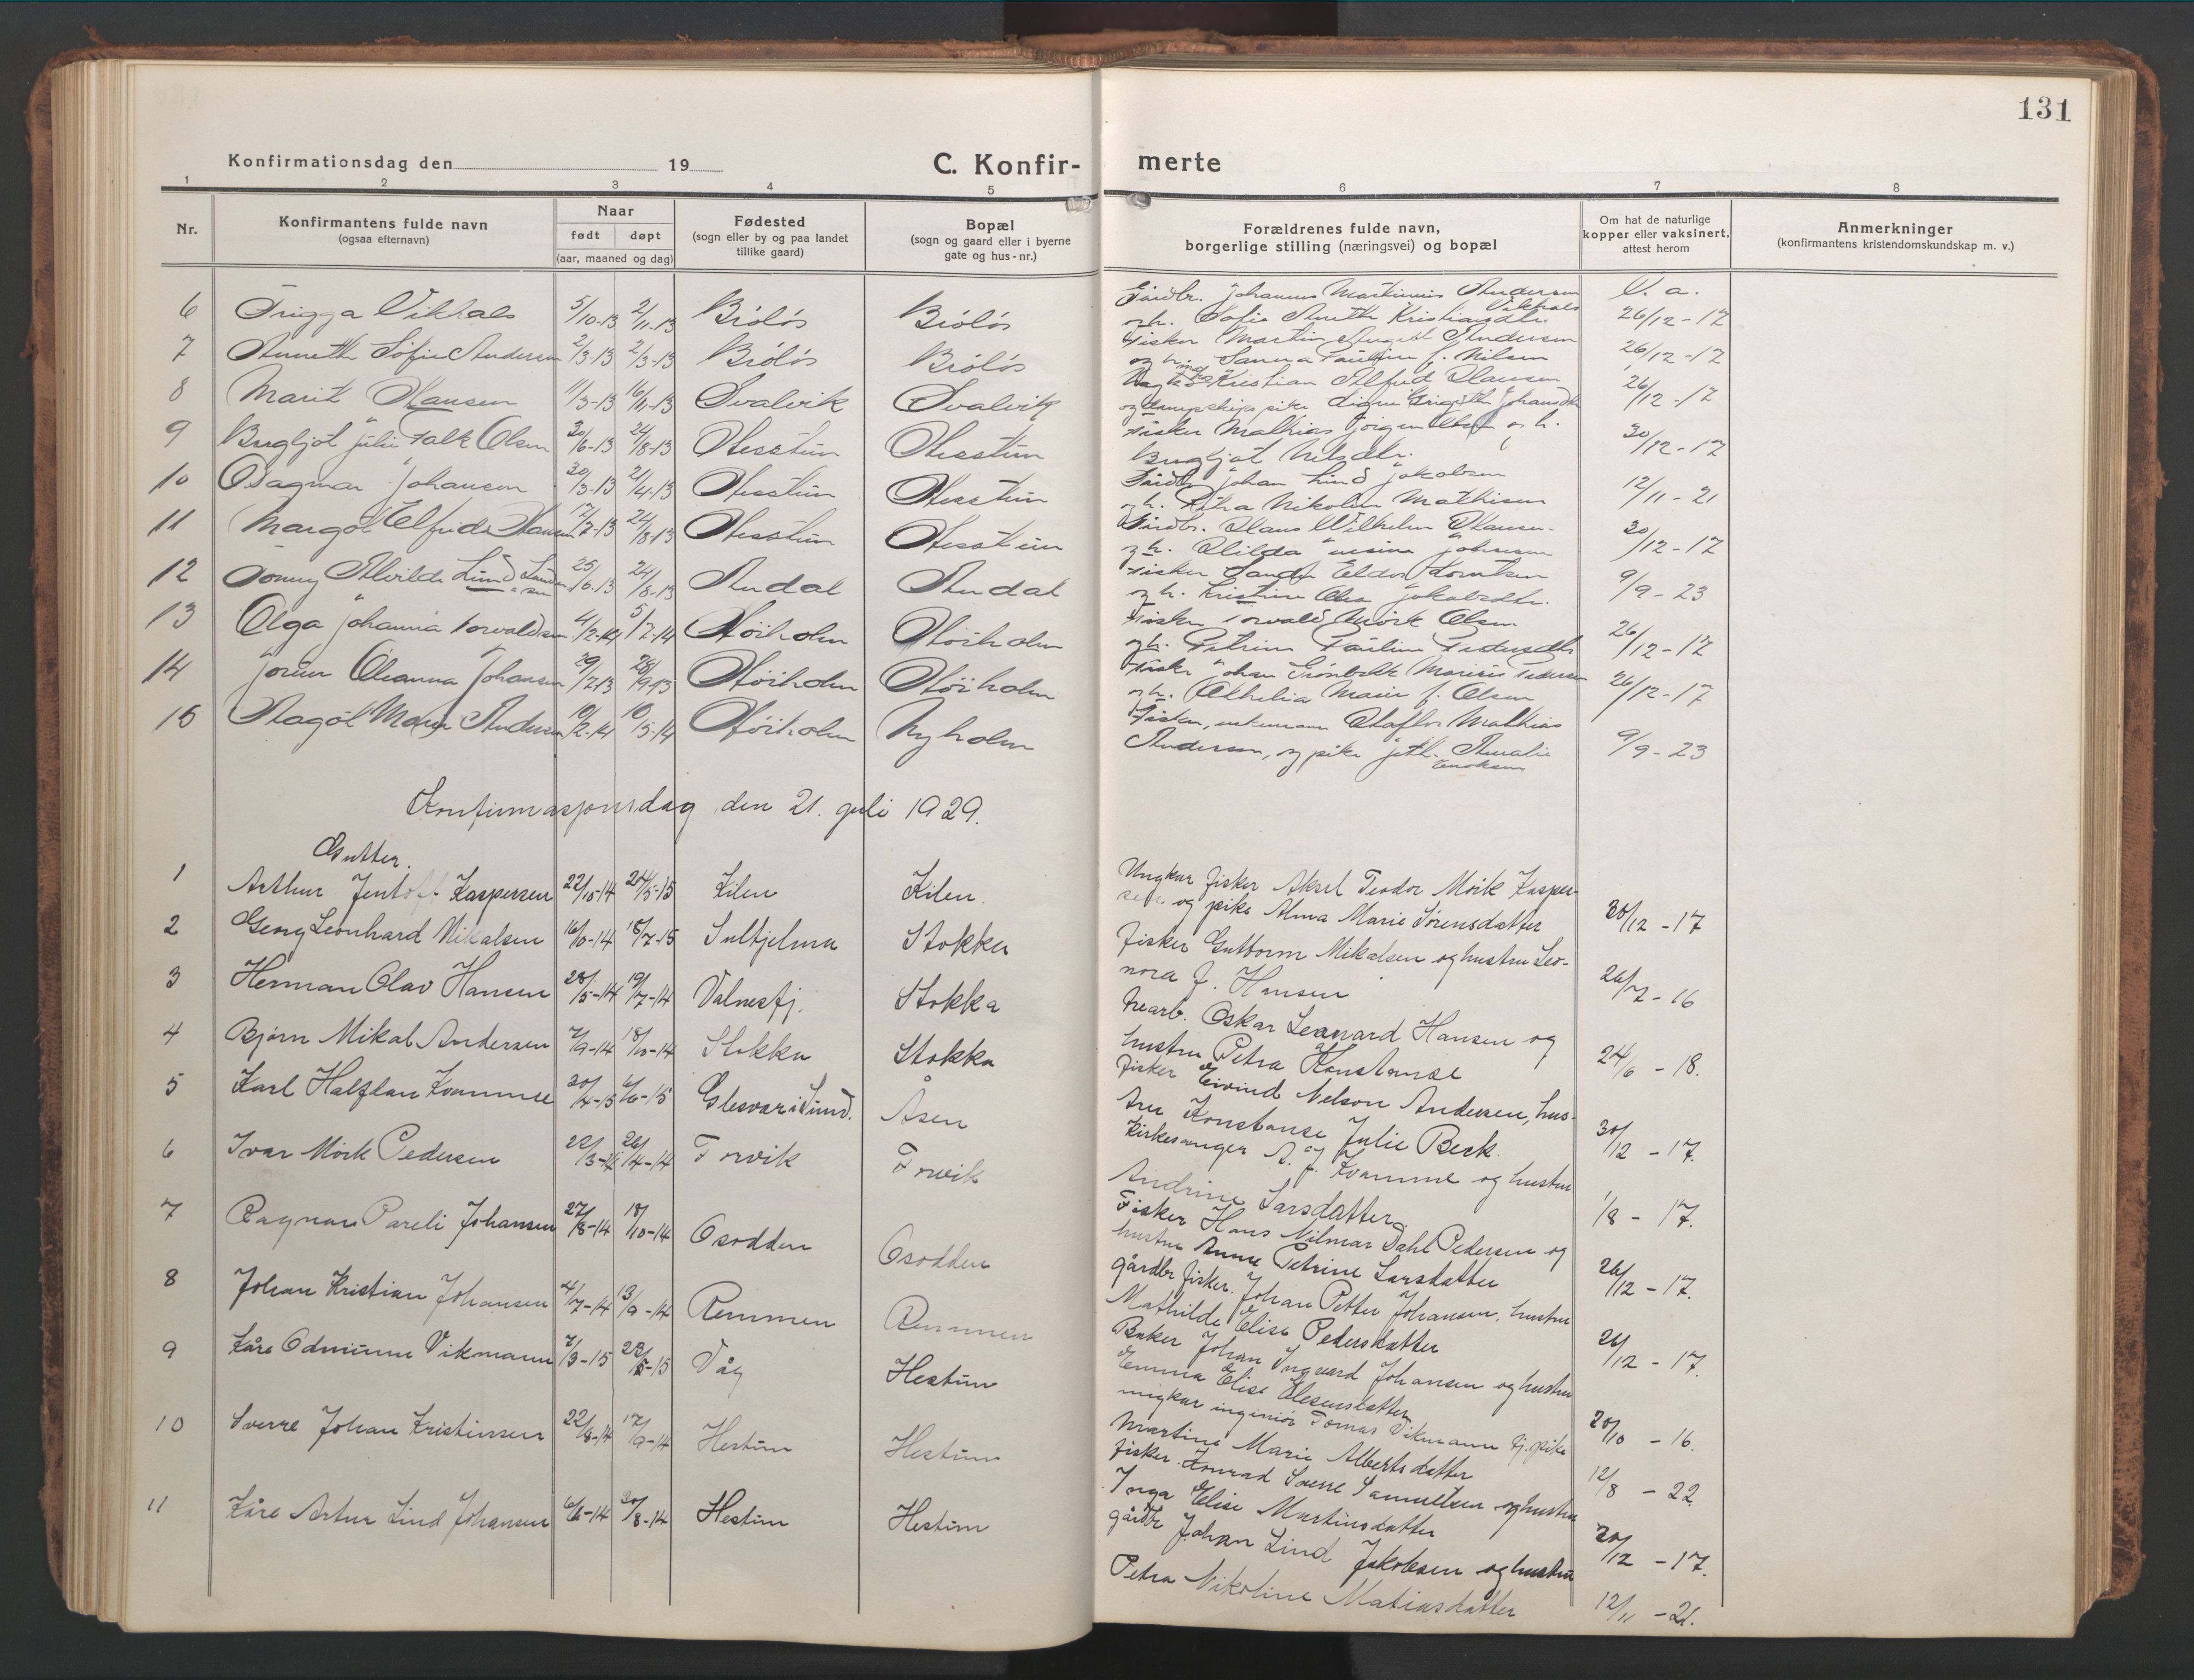 131
Konfirmationsdag den 19
C. Konfir- merte
1 2 3 4 5 6 7 8
Nr.
Konfirmantens fulde navn
(ogsaa efternavn)
Naar
født døpt
(aar, maaned og dag)
Fødested
(sogn eller by og paa landet
tillike gaard)
Bopæl
(sogn og gaard eller i byerne
gate og hus-nr.)
Forældrenes fulde navn,
borgerlige stilling (næringsvei) og bopæl
Om hat de naturlige
kopper eller vaksinert,
attest herom
Anmerkninger
(konfirmantens kristendomskundskap m. v.)
6 Frigga Vikhals 5/10-13 2/11-13 Bröløs Bröløs
Gårdbr. Johannes Martinius Andersen Vikhals
og h. Sofie Anette Kristiansdtr. 26/12-17
7 Annette Sofie Andersen 2/3-13 Bröløs Bröløs
Fisker Martin August Andersen
og h. Sanna Pauline f. Nilsen 26/12-17
8 Marit Hansen 11/3-13 16/11-13 Svalvik Svalvik
Kristian Alfred Hansen
og dampskips pike Signe Johansdtr 26/12-17
9 Bergljot Julie Falk Olsen 20/6-13 24/8-13 Hesstun Hesstun
Fisker Mathias Jørgen Olsen og h.
Bergljot Nelsdtr. 30/12-17
10 Dagmar Johansen 20/3-13 2/4-13 Hesstun Hesstun
Gårdbr Johan Lind Jakobsen
og h. Petra Nikoline Mathisen 12/11-21
11 Margot Elfrida Hansen 12/7-13 24/8-13 Hesstun Hesstun
Gårdbr. Hans Wilhelm Hansen
og h. Hilda Johnsen 30/12-17
12 Sonny Alvilde Lund 25/6-13 24/8-13 Audal Audal
Fisker Sander Eldor Lorntsen
og h. Kristine Olea Jakobsdtr. 9/9-23
13 Olga Johanna Torvaldsen 4/2-14 5/7-14 Høiholm Høiholm
Fisker Torvald Mörk Olsen
og h. Petrine Pauline Pedersdtr 26/12-17
14 Jorun Oleanna Johansen 29/7-13 28/9-13 Høiholm Høiholm
Fisker Johan Grønbekk Marius Pedersen
og h. Othelia Marie f. Olsen 26/12-17
15 Magot Marie Andersen 10/2-14 10/5-14 Høiholm Nyholm
Fisker, enkemann Hagbar Mathias
Andersen, og pike Jeth. Amalie
Enoksen 9/9-23
Konfirmasjonsdag den 21. juli 1929.
Gutter.
1 Arthur Jentoft Kaspersen 22/10-14 24/5-15 Kilen Kilen.
Ungkar fisker Aksel Teodor Mörk Kasper-
sen. og pike Alma Marie Sørensdatter 30/12-17
2 Georg Leonhard Mikalsen 16/10-14 18/7-15 Sulitjelma Stokka
Fisker Guttorm Mikalsen og hustru Leo-
nora J. Hansen 26/7-16
3 Herman Olav Hansen 28/5-14 19/7-14 Valnesfj. Stokka
Nearb. Oskar Leonard Hansen og
hustru Petra Konstanse 24/6-18.
4 Bjørn Mikal Andersen 7/9-14 18/10-14 Stokka Stokka
Fisker Eivind Nelson Andersen, hus-
tru Konstanse Julie Beck 30/12-17.
5 Karl Halfdan Kvamme 20/4-15 6/6-15 Glesvær i Sund. Åsen
Kirkesanger A. J. Kvamme og hustru
Andrine Larsdatter. 1/8-17.
6 Ivar Mörk Pedersen 22/3-14 26/4-14 Forvik Forvik
Fisker Hans Vilmar Dahl Pedersen og
hustru Anne Petrine Larsdatter 26/12-17.
7 Ragnar Pareli Johansen 27/8-14 18/10-14 Osodden Osodden
gårdbr. fisker. Johan Petter Johansen, hustru
Mathilde Elise Pedersdatter 26/12-17.
8 Johan Kristian Johansen 4/7-14 13/9-14 Remmen Remmen
Baker Johan Ingvard Johansen og hustru
Emma Elise Elesensdatter 20/10-16.
9 Kåre Odmunn Vikmann 7/3-15 23/5-15 Våg Hestun
ungkar ingeniør Tomas Vikmann og pike
Martine Marie Albertsdatter 12/8-22
10 Sverre Johan Kristinsen 22/8-14 17/9-14 Hestun Hestun
fisker. Konrad Sverre Samuelsen og hustru
Inga Elise Martinsdatter 20/12-17.
11 Kåre Artur Lind Johansen 6/6-14 30/8-14 Hestun Hestun
gårdbr Johan Lind Jakobsen og hustru
Petra Nikoline Matiasdatter 12/11-21.